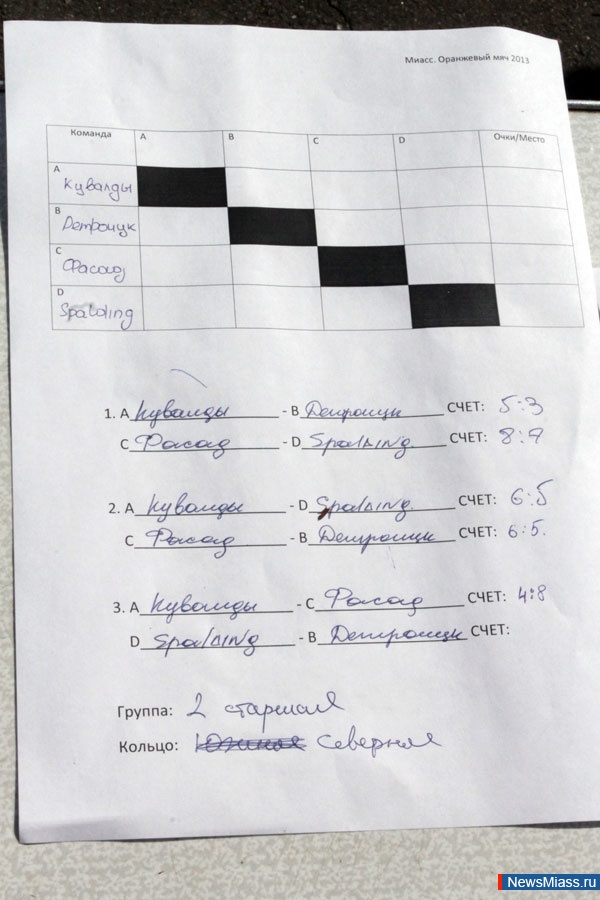 Миасс. Оранжевый мяч 2013
Команда A B C D Очки/Место
A Кувалды
B Детройцк
C Фасад
D Spalding
1. A Кувалды - B Детройцк СЧЕТ: 5:3
C Фасад - D Spalding СЧЕТ: 8:9
2. A Кувалды - D Spalding СЧЕТ: 6:5
C Фасад - B Детройцк СЧЕТ: 6:5.
3. A Кувалды - C Фасад СЧЕТ: 4:8
D Spalding - B Детройцк СЧЕТ:
Группа: 2 старшая
Кольцо: Южная Северная
NewsMiass.ru